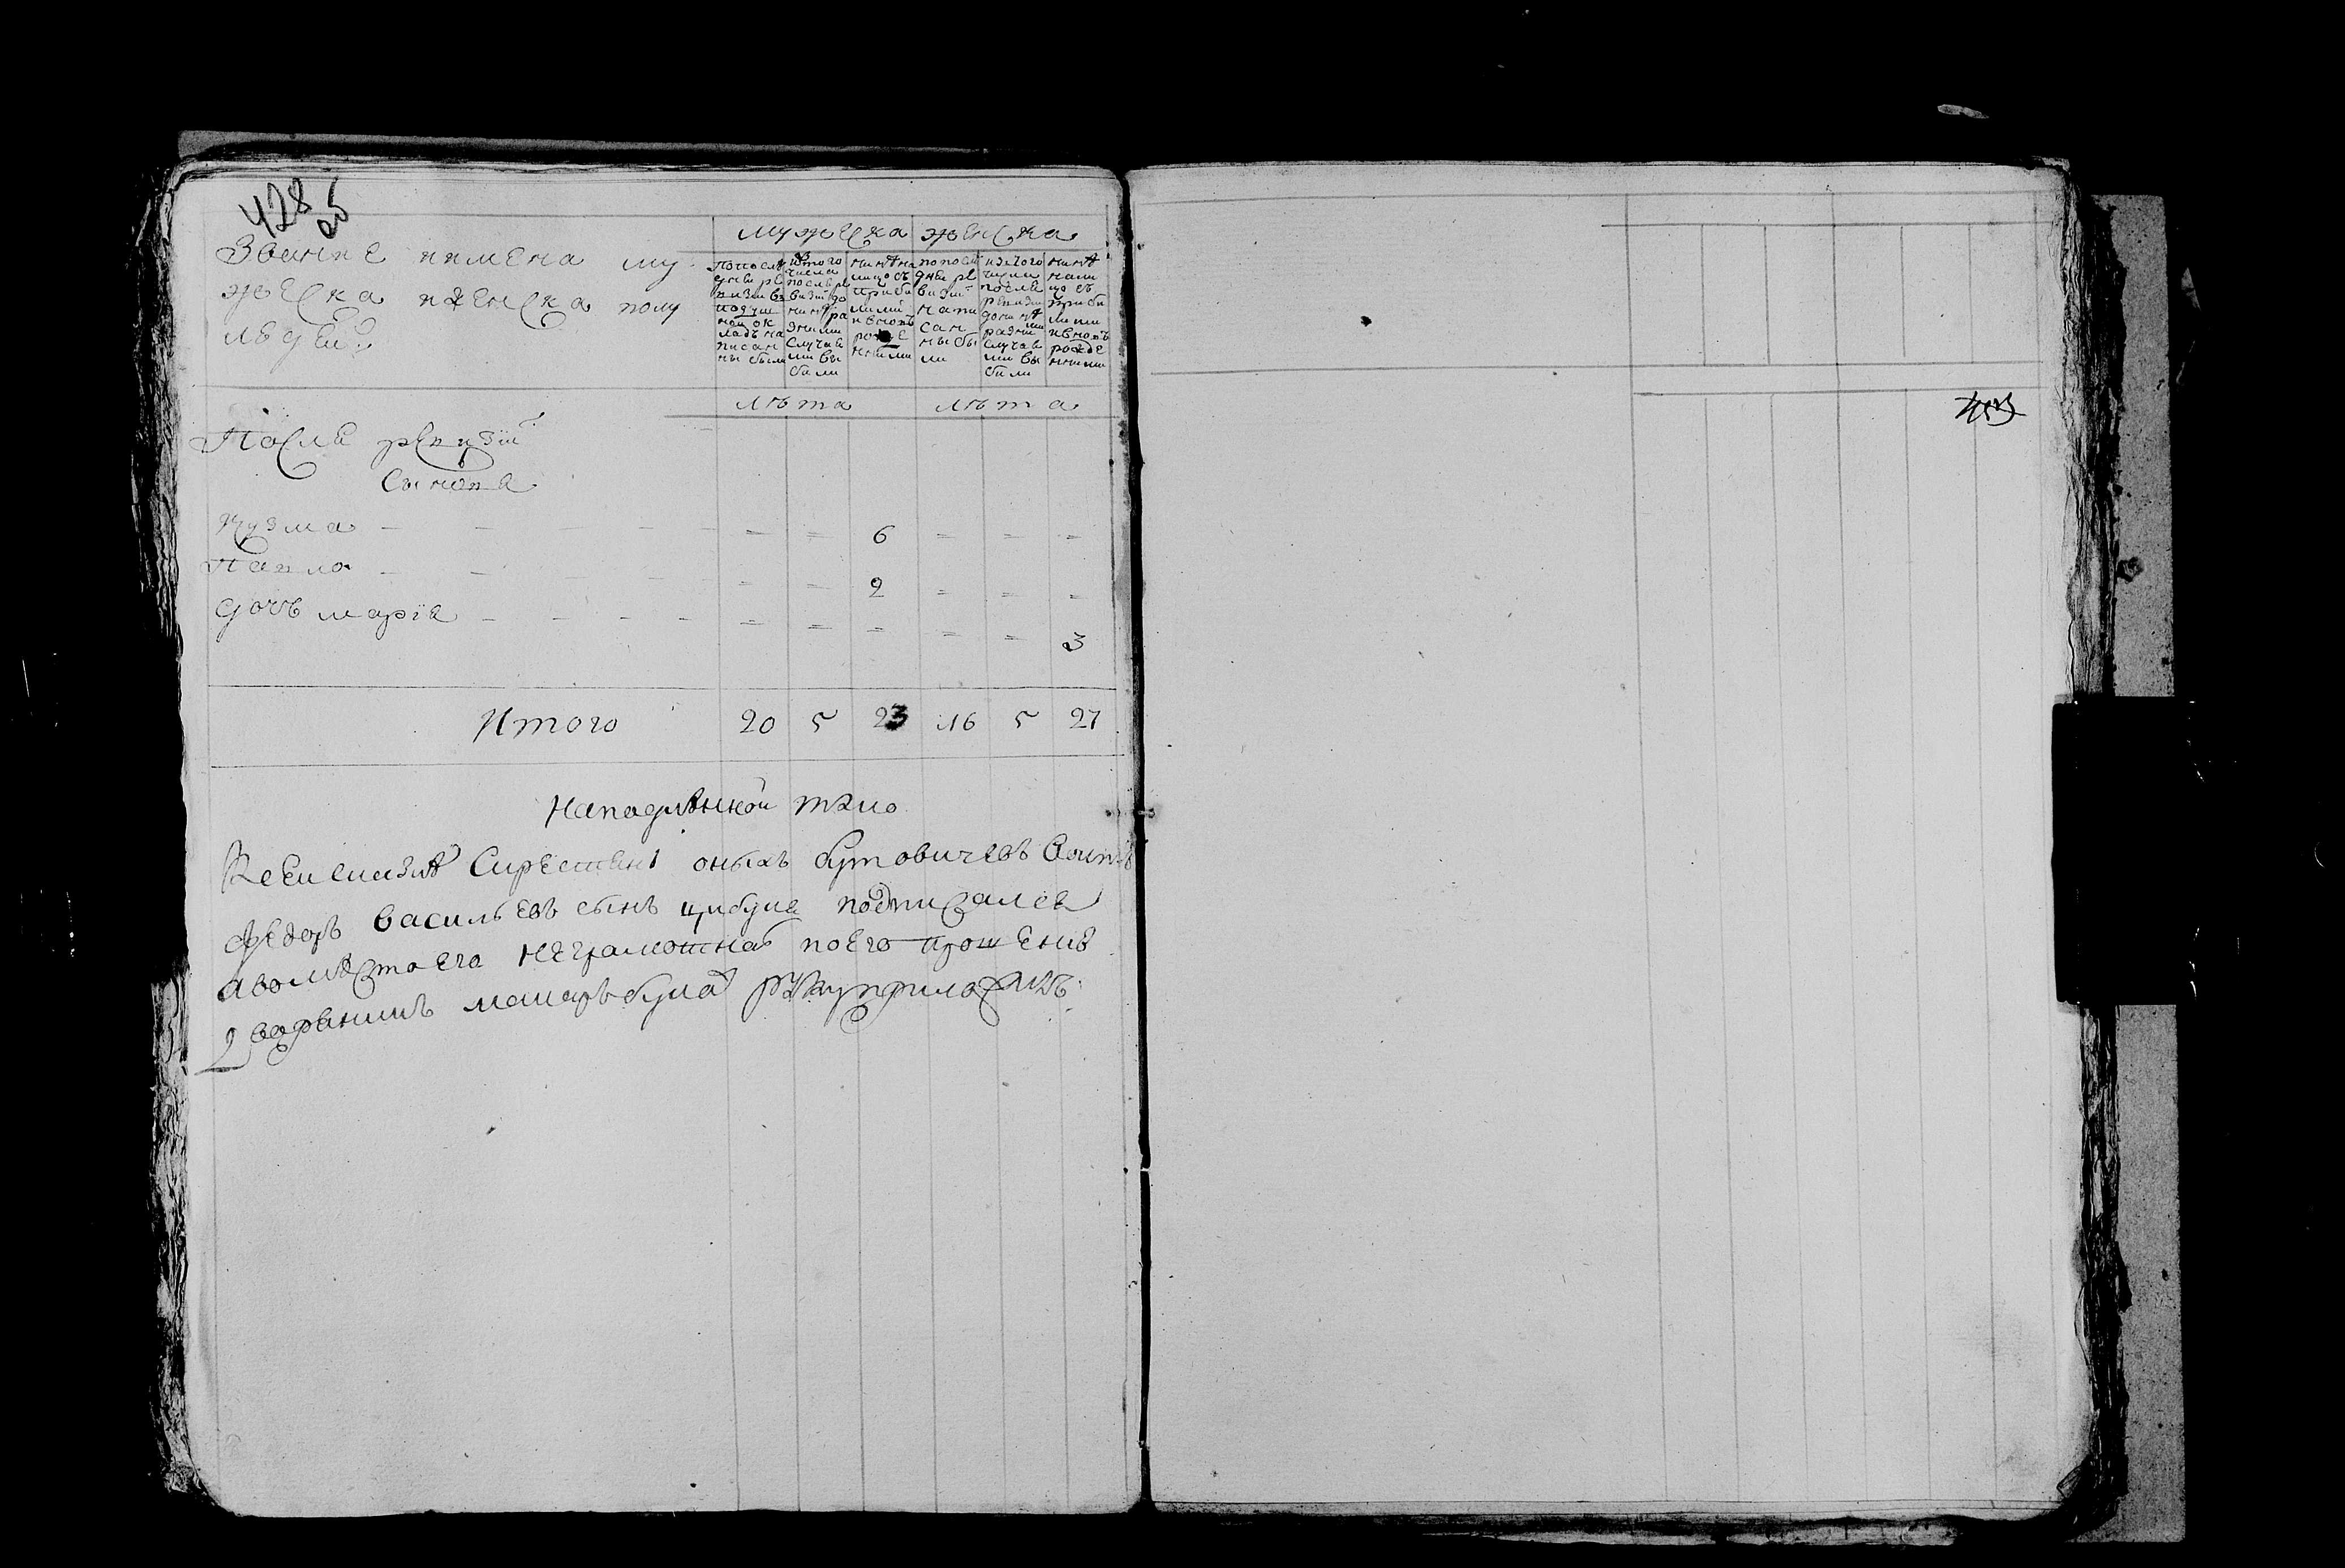 428 об
Звание и имена му
жеска и женска полу
людей
мужеска женска
По после
дней ре
визии въ
подуш
ной ок
ладъ на
писан
ны были
из того
числа
после ре
визии до
ныне ра
зными
случая
ми вы
были
ныне на
лицо съ
прибы
лыми
и вновъ
рожде
нними
по после
дней ре
визии
напи
сан
ны бы
ли
из того
числа
после
ревизии
до ныне
разными
случая
ми вы
были
ныне
нали
цо съ
прибы
лыми
и вновъ
рожде
нними
лѣта лѣта
После ревизии
Сыновя
Кузма - - - - - = = 6 = = =
Павло - - - - - = = 2 = = =
дочь мария - - - - = = = = = 3
Итого 20 5 23 16 5 27
На подлѣнной тако
К сей сказке
оныхъ бутовичевъ
федоръ василъевъ сынъ цибуля подписался
а вомѣсто его неграмотнаго по его прошению
дворянинъ руку приложилъ